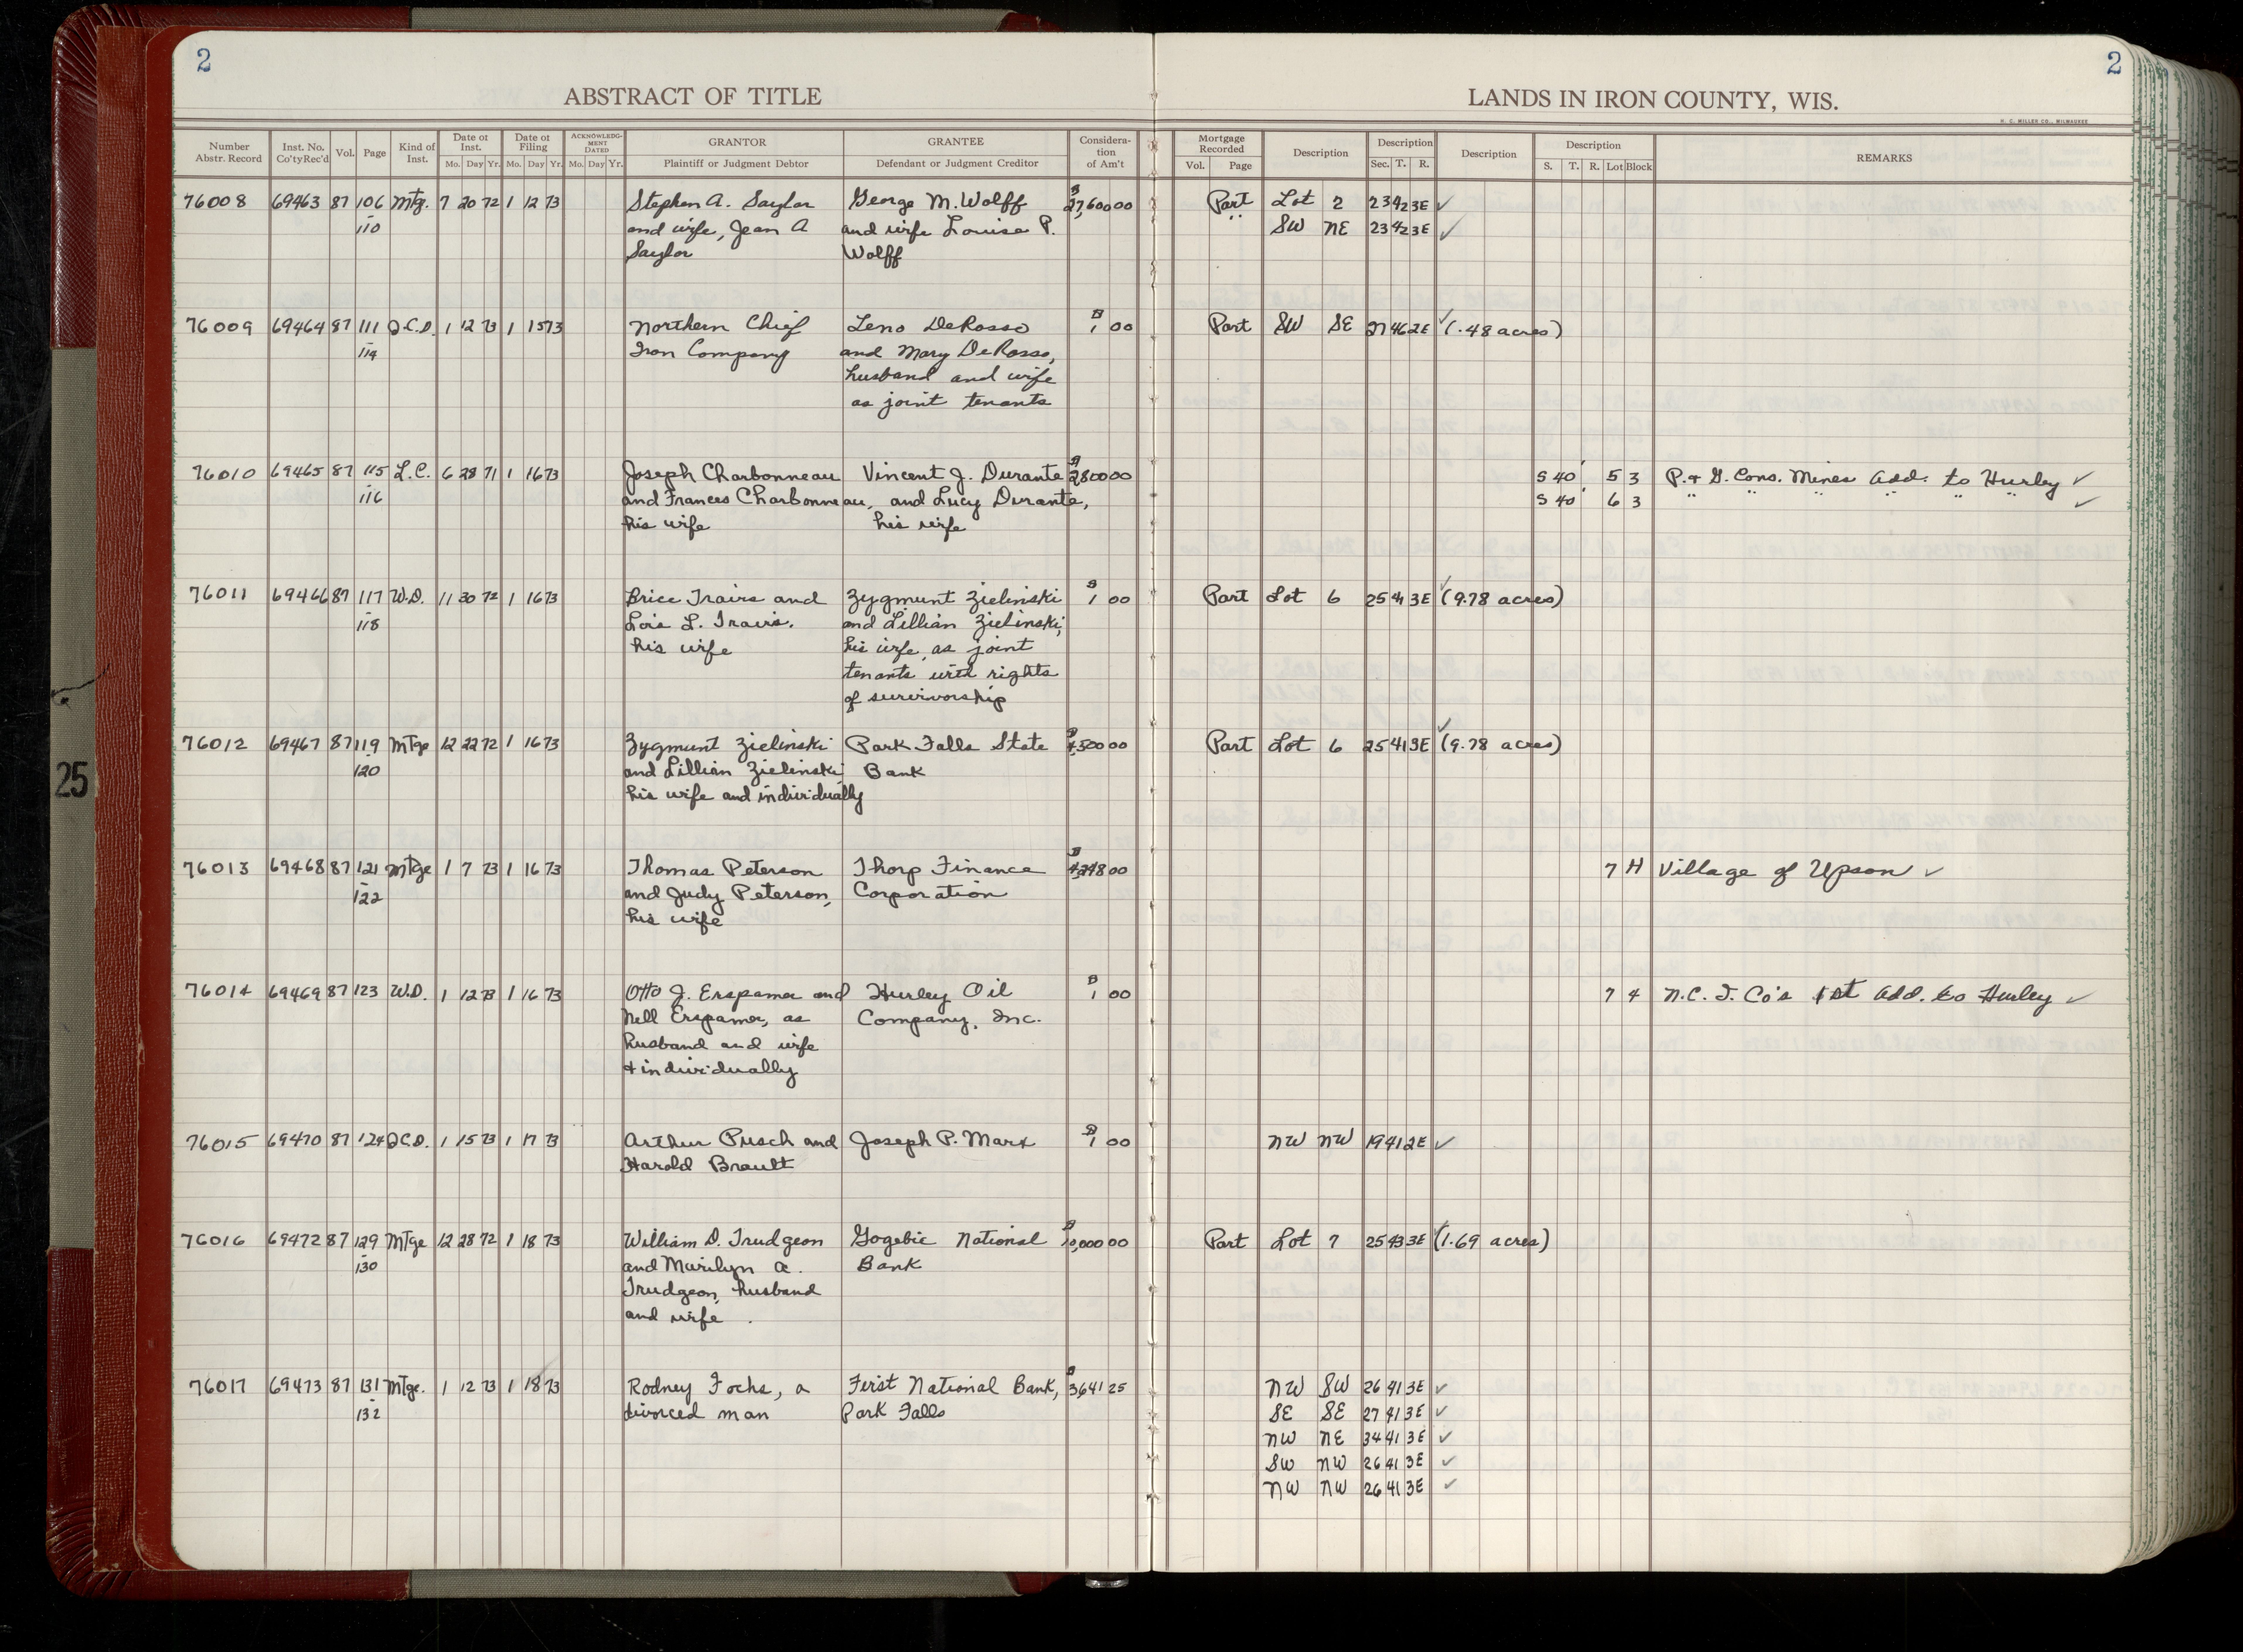 2
2
ABSTRACT OF TITLE
LANDS IN IRON COUNTY, WIS.
H. C. MILLER CO., MILWAUKEE
Number Abstr. Record | Inst. No. Co'ty Rec'd | Vol. | Page | Kind of Inst. | Date of Inst. Mo. Day Yr. | Date of Filing Mo. Day Yr. | ACKNOWLEDGMENT DATED Mo. Day Yr. | GRANTOR Plaintiff or Judgment Debtor | GRANTEE Defendant or Judgment Creditor | Consideration of Am't | Mortgage Recorded Vol. Page | Description | Description Sec. T. R. | Description | Description S. T. R. Lot Block | REMARKS
76008 69463 87 106 Mtg. 7 20 72 1 12 73 Stephen A. Saylor George M. Wolff $27,600 00 Part Lot 2 23 42 3E ✓
- 110 and wife, Jean A and wife Louise P. " SW NE 23 42 3E ✓
Saylor Wolff
76009 69464 87 111 Q.C.D. 1 12 73 1 15 73 Northern Chief Leno DeRosso $1 00 Part SW SE 27 46 2E ✓ (.48 acres)
- 114 Iron Company and Mary DeRosso,
husband and wife
as joint tenants
76010 69465 87 115 L.C. 6 28 71 1 16 73 Joseph Charbonneau Vincent J. Durante $2,800 00 S 40' 5 3 P. & G. Cons. Mines Add. to Hurley ✓
- 116 and Frances Charbonneau, and Lucy Durante, S 40' 6 3 " " " " " " ✓
his wife his wife
76011 69466 87 117 W.D. 11 30 72 1 16 73 Brice Travis and Zygmunt Zielinski $1 00 Part Lot 6 25 41 3E ✓ (9.78 acres)
- 118 Lois L. Travis, and Lillian Zielinski,
his wife his wife, as joint
tenants with rights
of survivorship
76012 69467 87 119 Mtge 12 22 72 1 16 73 Zygmunt Zielinski Park Falls State $4,500 00 Part Lot 6 25 41 3E ✓ (9.78 acres)
- 120 and Lillian Zielinski, Bank
his wife and individually
25
76013 69468 87 121 Mtge 1 7 73 1 16 73 Thomas Peterson Thorp Finance 00 7 H Village of Upson ✓
- 122 and Judy Peterson, Corporation
his wife
76014 69469 87 123 W.D. 1 12 73 1 16 73 Otto J. Erspamer and Hurley Oil $1 00 7 4 N.C.I. Co's 1st Add. to Hurley ✓
Nell Erspamer, as Company, Inc.
husband and wife
& individually
76015 69470 87 124 Q.C.D. 1 15 73 1 17 73 Arthur Pusch and Joseph P. Marx $1 00 NW NW 19 41 2E ✓
Harold Brault
76016 69472 87 129 Mtge 12 28 72 1 18 73 William D. Trudgeon Gogebic National $10,000 00 Part Lot 7 25 43 3E ✓ (1.69 acres)
- 130 and Marilyn A. Bank
Trudgeon, husband
and wife.
76017 69473 87 131 Mtge. 1 12 73 1 18 73 Rodney Fochs, a First National Bank, $3,641 25 NW SW 26 41 3E ✓
- 132 divorced man Park Falls SE SE 27 41 3E ✓
NW NE 34 41 3E ✓
SW NW 26 41 3E ✓
NW NW 26 41 3E ✓